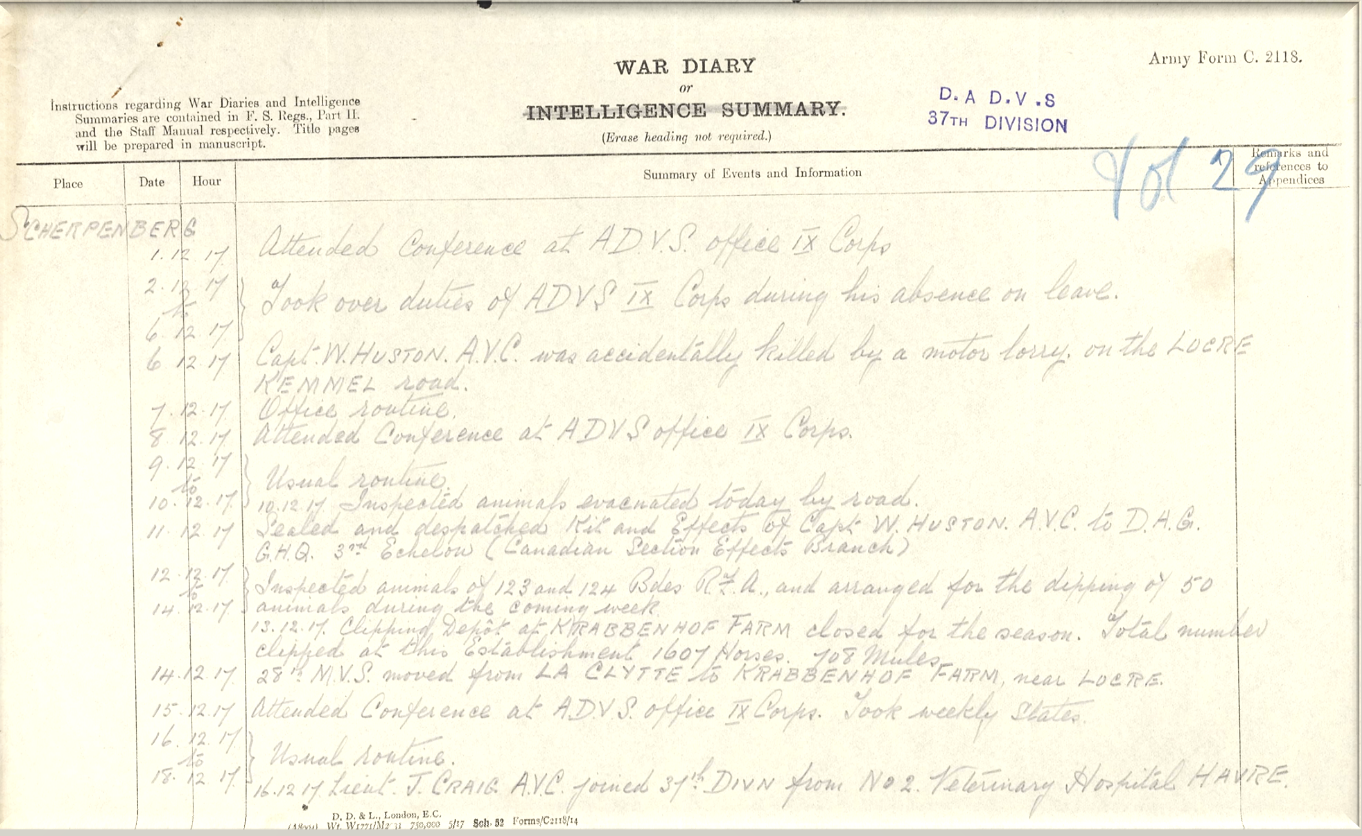 Army Form C. 2118.
WAR DIARY
or
INTELLIGENCE SUMMARY.
(Erase heading not required.)
Instructions regarding War Diaries and Intelligence
Summaries are contained in F. S. Regs., Part II.
and the Staff Manual respectively. Title pages
will be prepared in manuscript.
D. A D. V. S
37TH DIVISION
Vol 29
Place Date Hour Summary of Events and Information Remarks and
references to
Appendices
SCHERPENBERG
1. 12 17 Attended Conference at A.D.V.S. office IX Corps
2. 12 17
to Took over duties of ADVS IX Corps during his absence on leave.
6. 12. 17
6 12. 17 Capt. W. HUSTON. A.V.C. was accidentally killed by a motor lorry. on the LOCRE
KEMMEL road.
7. 12. 17 Office routine.
8. 12. 17 Attended Conference at ADVS office IX Corps.
9. 12. 17
to Usual routine.
10. 12. 17. 10.12.17 Inspected animals evacuated today by road.
11. 12. 17 Sealed and despatched Kit and Effects of Capt W. HUSTON. A.V.C. to D.A.G.
G.H.Q. 3rd Echelon (Canadian Section Effects Branch)
12. 12. 17. Inspected animals of 123 and 124 Bdes R.F.A., and arranged for the dipping of 50
to
14. 12. 17 animals during the coming week
13.12.17. Clipping Depôt at KRABBENHOF FARM closed for the season. Total number
clipped at this Establishment 1607 Horses. 708 Mules
14. 12 17. 28th M.V.S. moved from LA CLYTTE to KRABBENHOF FARM, near LOCRE.
15. 12. 17 Attended Conference at A.D.V.S. office IX Corps. Took weekly States.
16. 12. 17
to Usual routine.
18. 12 17. 16.12 17 Lieut. J. CRAIG A.V.C. joined 37th DIVN from No 2. Veterinary Hospital HAVRE.
D. D. & L., London, E.C.
Wt. W1771/M2 31 750,000 5/17 Sch. 52 Forms/C2118/14